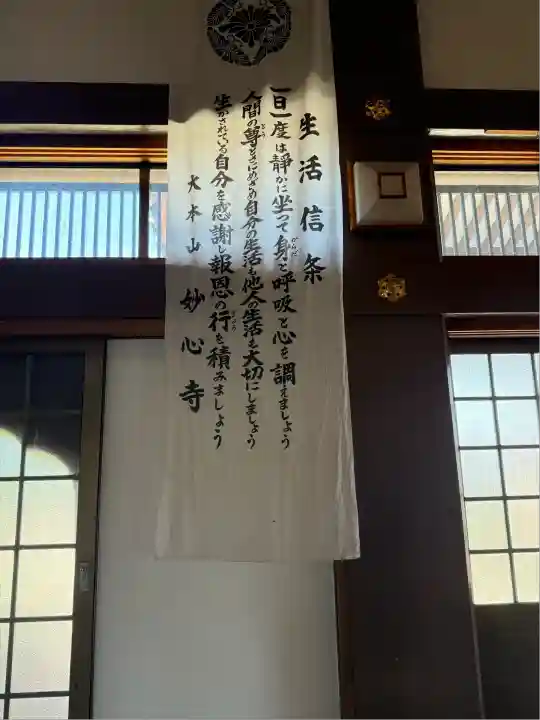 生活信条
一日一度は静かに坐って身と呼吸と心を調えましょう
人間の尊さにめざめ自分の生活も他人の生活も大切にしましょう
生かされている自分を感謝し報恩の行を積みましょう
大本山 妙心寺